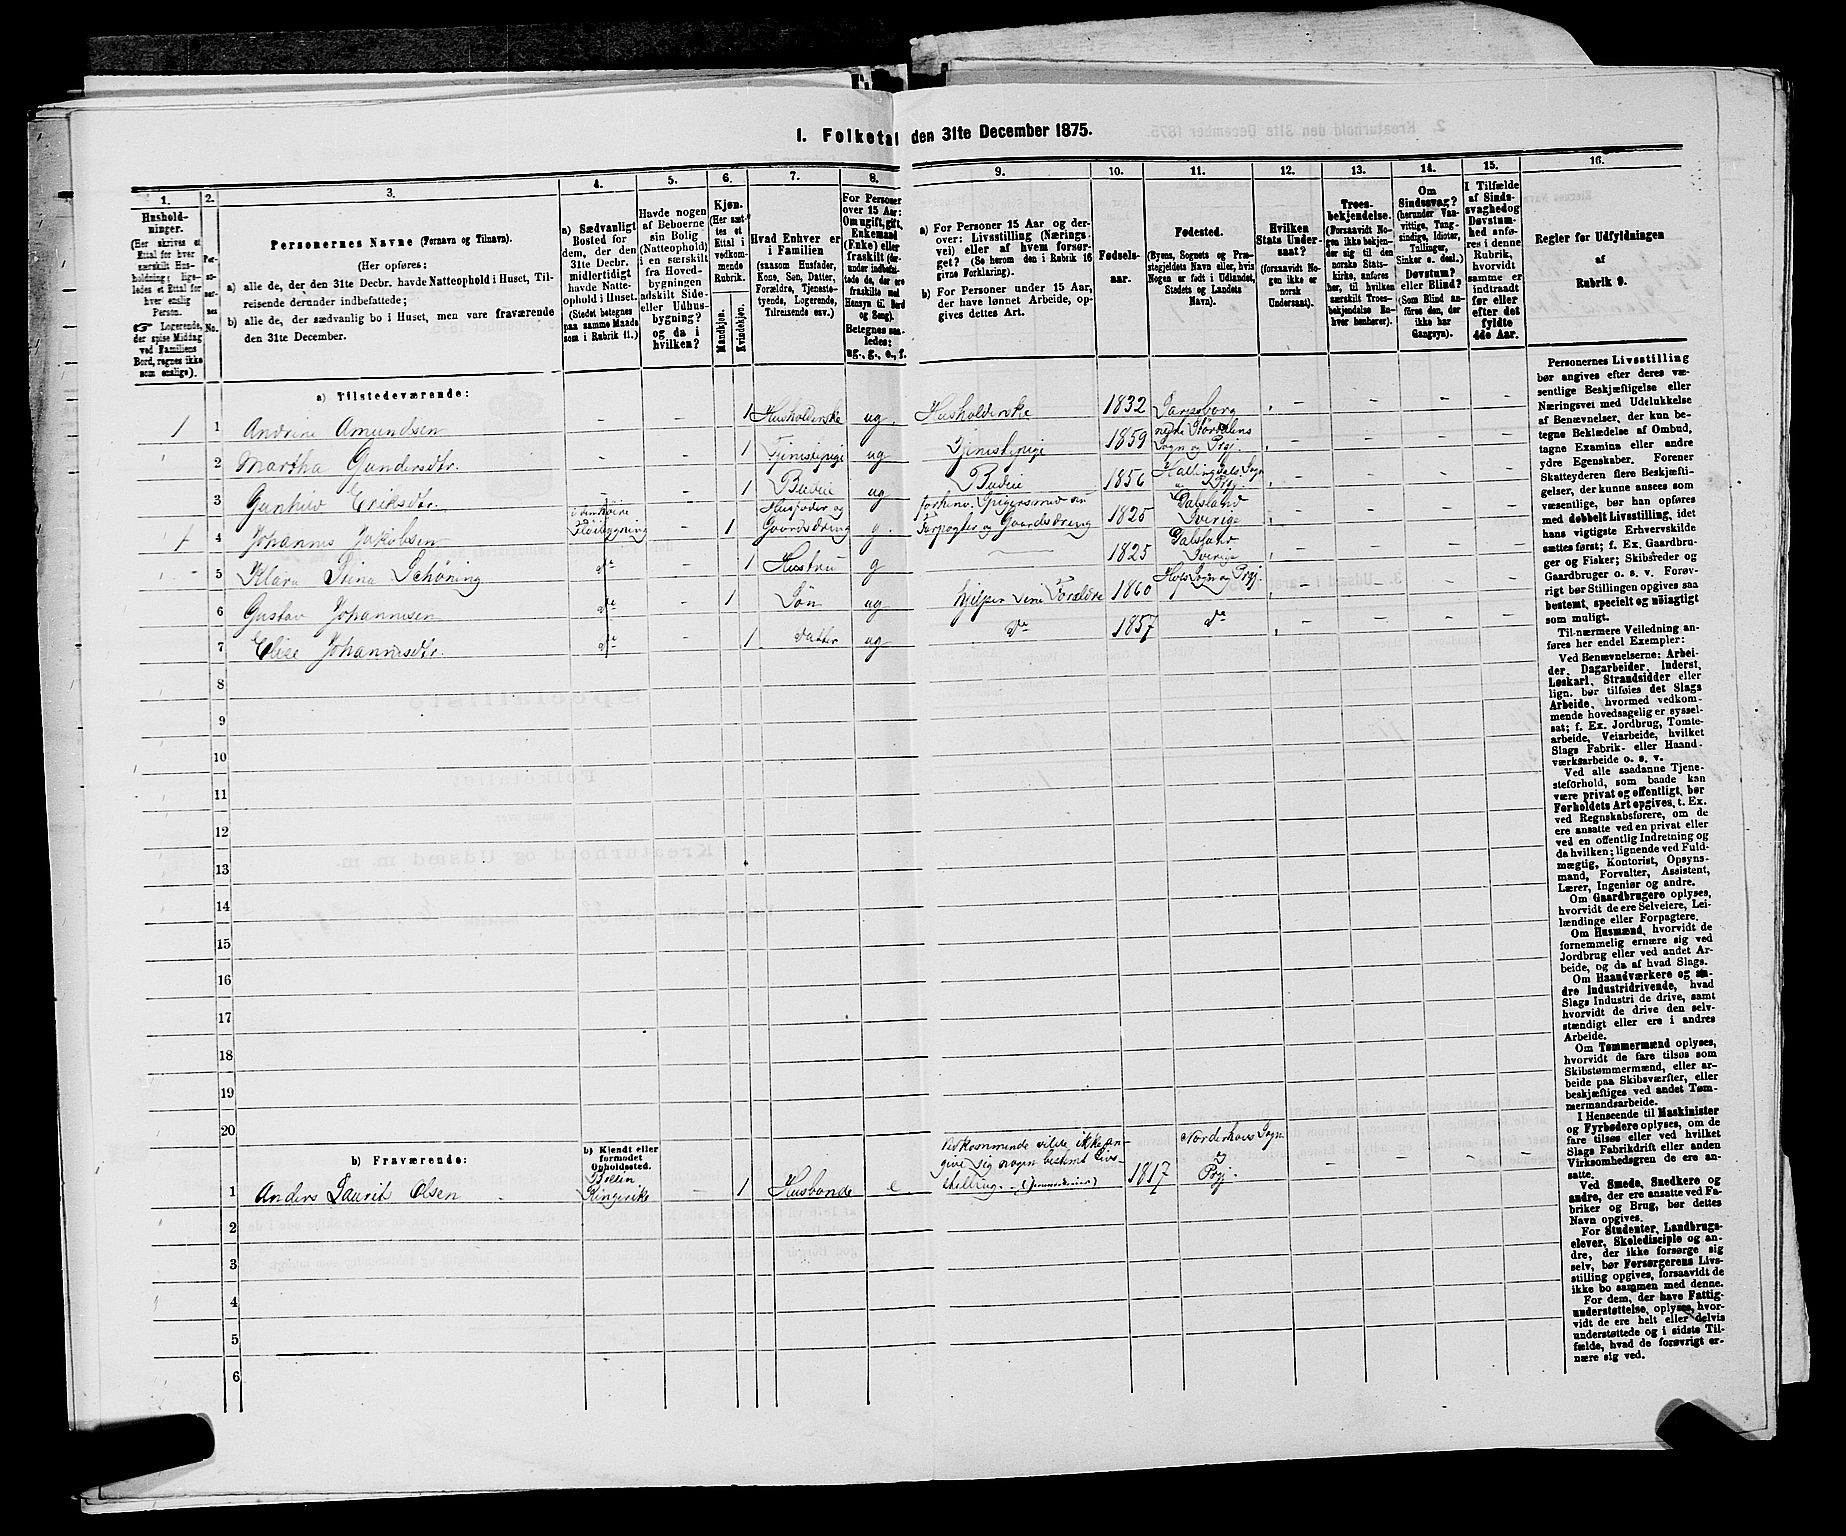 1. Folketal den 31te December 1875.
1.
2.
3.
4.
5.
6.
7.
8.
9.
10.
11.
12.
13.
14.
15.
16.
Husholdninger.
(Her skrives et
Ettal for hver
særskilt Husholdning; ligeledes
et Ettal for
hver enslig
Person.
☞ Logerende,
der spise Middag
ved Familiens
Bord, regnes ikke
som enslige).
Personernes No.
Personernes Navne (Fornavn og Tilnavn).
(Her opføres:
a) alle de, der den 31te Decbr. havde Natteophold i Huset, Tilreisende
derunder indbefattede;
b) alle de, der sædvanlig bo i Huset, men vare fraværende
den 31te December.
a) Sædvanligt
Bosted for
dem, der den
31te Decbr.
midlertidigt
havde Natteophold
i Huset.
(Stedet betegnes
paa samme Maade
som i Rubrik 11.)
Havde nogen
af Beboerne
sin Bolig
(Natteophold)
i en særskilt
fra Hovedbygningen
adskilt Side-
eller Udhusbygning?
og da i
hvilken?
Kjøn.
(Her sættes
et
Ettal i
vedkommende
Rubrik.
Mandkjøn.
Kvindekjøn.
Hvad Enhver er
i Familien
(saasom Husfader,
Kone, Søn, Datter,
Forældre, Tjenestetyende,
Logerende,
Tilreisende osv.)
For Personer
over 15 Aar:
Om ugift, gift,
Enkemand
(Enke) eller
fraskilt
Betegnes saaledes:
ug., g., e., f.
a) For Personer 15 Aar og derover:
Livsstilling (Næringsvei)
eller af hvem forsørget?
(Se herom den i Rubrik 16
givne Forklaring).
b) For Personer under 15 Aar,
der have lønnet Arbeide, opgives
dettes Art.
Fødselsaar.
Fødested.
(Byens, Sognets og Præstegjeldets
Navn eller, hvis
Nogen er født i Udlandet,
Stedets og Landets
Navn).
Hvilken
Stats Undersaat?
(forsaavidt Nogen
ikke er
norsk
Undersaat).
Troesbekjendelse.
(Forsaavidt Nogen
ikke bekjender
sig til den
norske Statskirke,
anføres
her, til hvilken
særskilt Troesbekjendelse
Enhver
henhører).
Om
Sindssvag?
(herunder Vanvittige,
Tungsindige,
Idioter,
Tullinger,
Sinker o. desl.)
Døvstum?
eller Blind?
(Som Blind anføres
den, der
ikke har
Gangsyn).
I Tilfælde
af Sindssvaghed
og
Døvstumhed
anføres
i denne
Rubrik,
hvorvidt
samme er
indtraadt
før eller
efter det
fyldte
4de Aar.
Regler for Udfyldningen
af
Rubrik 9.
a) Tilstedeværende:
1 1 Andrine Amundsen - - 1 Husholderske ug. Husholderske 1832
2 Martha Gundersdtr. - - 1 Tjenistepige ug Tjenistepige 1859 nedre Stördalens Sogn og Prgj.
3 Gunhild Eriksdtr. - - 1 Budeie ug Budeie 1856 Hallingdals Sogn
1 4 Johannes Jakobsen - 1 Husfader og Gaardsdreng g. Forpagter og Gaardsdreng 1825 Dalsland Sverige
5 Klara Stina Schöning do - 1 Hustru g 1825 Dalsland Sverige
6 Gustav Johannesen do - 1 Søn ug hjelper sine Forældre 1860 Hols Sogn og Prgj.
7 Elise Johannesdtr. do - 1 datter ug do 1857 do
8
9
10
11
12
13
14
15
16
17
18
19
20
b) Fraværende:
b) Kjendt eller
formodet
Opholdssted.
1 Anders Laurits Olsen Ringerike - 1 Husbonde e. Vedkommende vilde ikke angive sig nogen bestemt Livsstilling. 1817 Norderhovs Sogn og Prgj.
2
3
4
5
6
Personernes Livsstilling
bør angives efter deres væsentlige
Beskjæftigelse eller
Næringsvei med Udelukkelse
af Benævnelser, der kun betegne
Beklædelse af Ombud,
tagne Examina eller andre
ydre Egenskaber. Forener
Skatteyderen flere Beskjæftigelser,
der kunne ansees som
væsentlige, bør han opføres
med dobbelt Livsstilling, idet
hans vigtigste Erhvervskilde
sættes først; f. Ex. Gaardbruger
og Fisker; Skibsreder og
Gaardbruger o. s. v. Forøvrigt
bør Stillingen opgives saa
bestemt, specielt og nöiagtigt
som muligt.
Til nærmere Veiledning anføres
her endel Exempler:
Ved Benævnelserne: Arbeider,
Dagarbeider, Inderst,
Løskarl, Strandsidder eller
lign. bør tilføies det Slags
Arbeide, hvormed vedkommende
hovedsagelig er sysselsat;
f. Ex. Jordbrug, Tomtearbeide,
Veiarbeide, hvilket
Slags Fabrik- eller Haandværksarbeide
o. s. v.
Ved alle saadanne Tjenesteforhold,
som baade kan
være privat og offentligt, bør
Forholdets Art opgives, t. Ex.
ved Regnskabsførere, om de
ere ansatte ved en privat eller
ved en offentlig Indretning og
da hvilken; lignende ved Fuldmægtig,
Kontorist, Opsynsmand,
Forvalter, Assistent,
Lærer, Ingeniør og andre.
Om Gaardbrugere oplyses,
hvorvidt de ere Selveiere, Leilændinge
eller Forpagtere.
Om Husmænd, hvorvidt de
fornemmelig ernære sig ved
Jordbrug eller ved andet Arbeide,
og da af hvad Slags.
Om Haandværkere og andre
Industridrivende, hvad
Slags Industri de drive, samt
hvorvidt de drive den selvstændigt
eller ere i andres
Arbeide.
Om Tømmermænd oplyses,
hvorvidt de fare tilsøs som
Skibstømmermænd, eller arbeide
paa Skibsværfter, eller
beskjæftiges ved andet Tømmermandsarbeide.
I Henseende til Maskinister
og Fyrbødere oplyses, om de
fare tilsøs eller ved hvilket
Slags Fabrikdrift eller anden
Virksomhedsgren de ere ansatte.
Ved Smede, Snedkere og
andre, der ere ansatte ved Fabriker
og Brug, bør dettes
Navn opgives.
For Studenter, Landbrugselever,
Skoledisciple og andre,
der ikke forsørge sig
selv, bør Forsørgerens Livsstilling
opgives, forsaavidt de
ikke bo sammen med denne.
For dem, der have Fattigunderstøttelse,
oplyses, hvorvidt
de ere helt eller delvis
understøttede og i sidste Tilfælde,
hvad de forøvrigt ernære
sig ved.